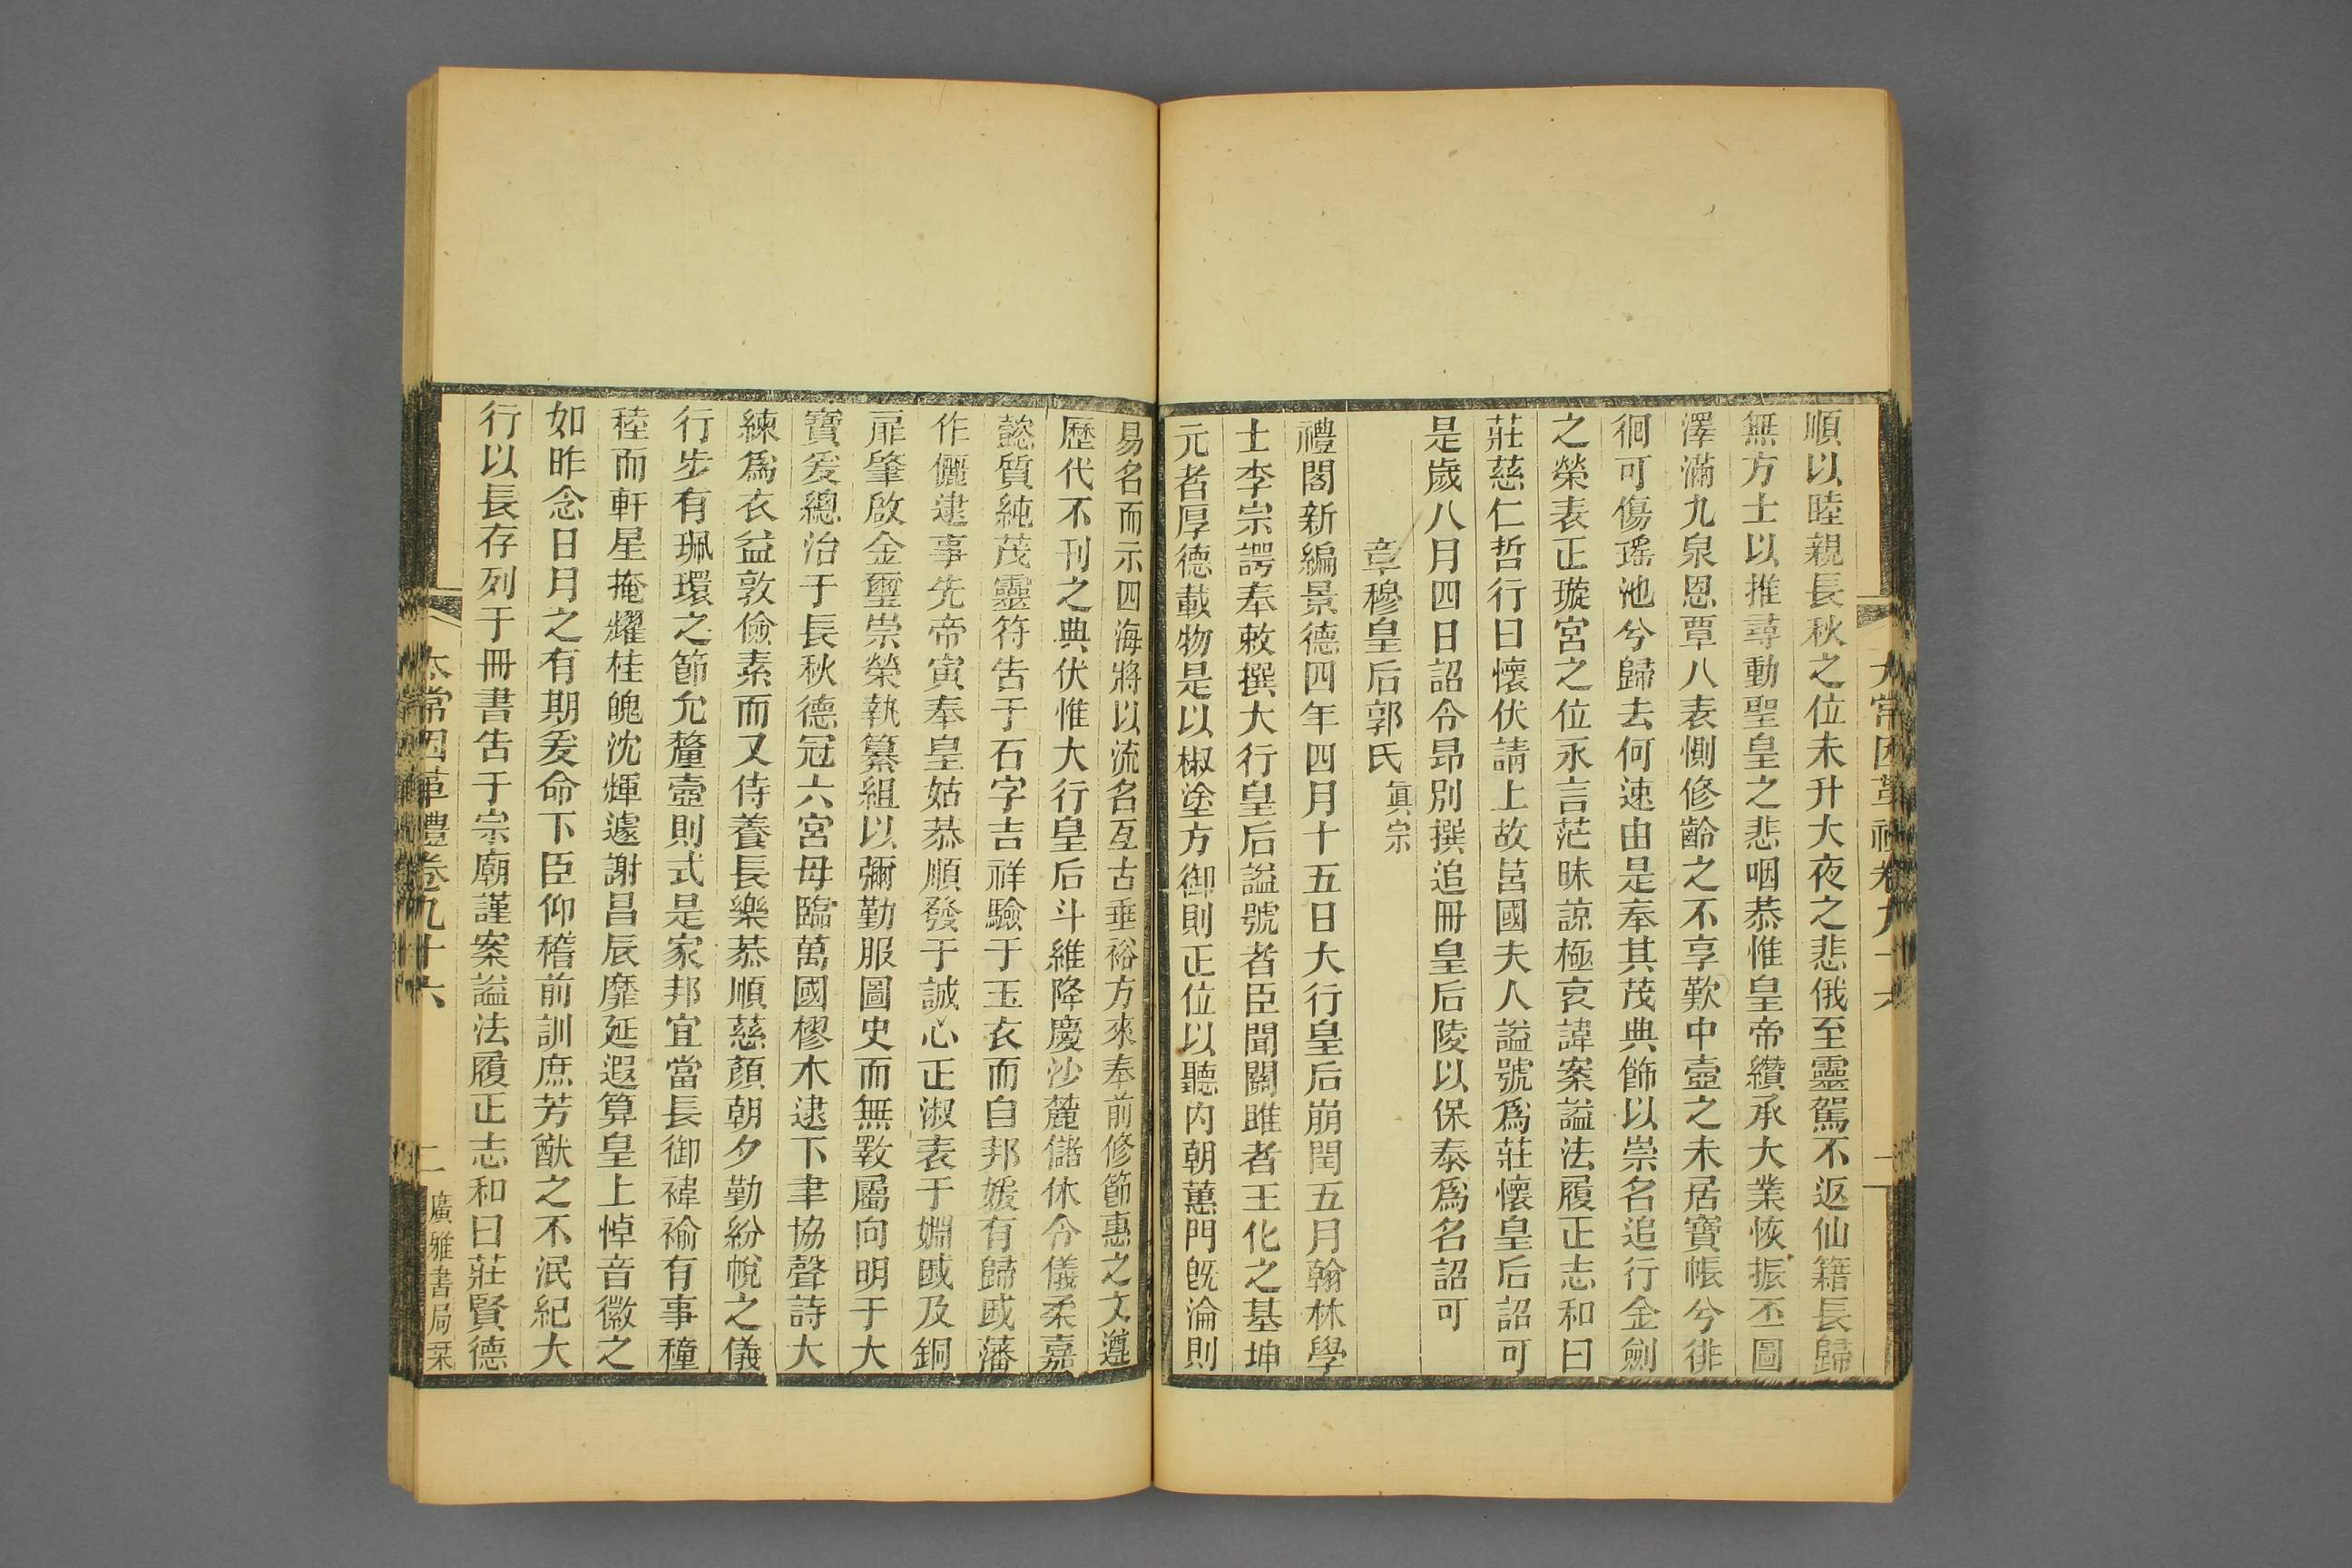 太常因革禮卷九十六
順以睦親長秋之位未升大夜之悲俄至靈駕不返仙籍長歸
無方士以推尋動聖皇之悲咽恭惟皇帝纘承大業恢振丕圖
澤滿九泉恩覃八表惻修齡之不享歎中壼之未居寶帳兮徘
徊可傷瑶池兮歸去何速由是奉其茂典飾以崇名追行金劒
之榮表正璇宮之位永言茫昧諒極哀諱案謚法履正志和曰
莊慈仁哲行曰懷伏請上故莒國夫人謚號爲莊懷皇后詔可
是歲八月四日詔令昂別撰追冊皇后陵以保泰爲名詔可
章穆皇后郭氏眞宗
禮閣新編景德四年四月十五日大行皇后崩閏五月翰林學
士李宗諤奉敕撰大行皇后謚號者臣聞關雎者王化之基坤
元者厚德載物是以椒塗方御則正位以聽內朝蕙門旣淪則
易名而示四海將以流名亙古垂裕方來奉前修節惠之文遵
歷代不刊之典伏惟大行皇后斗維降慶沙麓儲休令儀柔嘉
懿質純茂靈符吿于石字吉祥驗于玉衣而自邦媛有歸戚藩
作儷逮事先帝寅奉皇姑恭順發于誠心正淑表于婣戚及銅
扉肇啟金璽崇榮執纂組以彌勤服圖史而無斁屬向明于大
寶爰總治于長秋德冠六宮母臨萬國樛木逮下聿協聲詩大
練爲衣益敦儉素而又侍養長樂恭順慈顏朝夕勤紛帨之儀
行步有珮環之節允釐壼則式是家邦宜當長御褘褕有事穜
稑而軒星掩耀桂魄沈輝遽謝昌辰靡延遐算皇上悼音徽之
如昨念日月之有期爰命下臣仰稽前訓庶芳猷之不泯紀大
行以長存列于冊書吿于宗廟謹案謚法履正志和曰莊賢德
太常因革禮卷九十六
二
廣雅書局栞